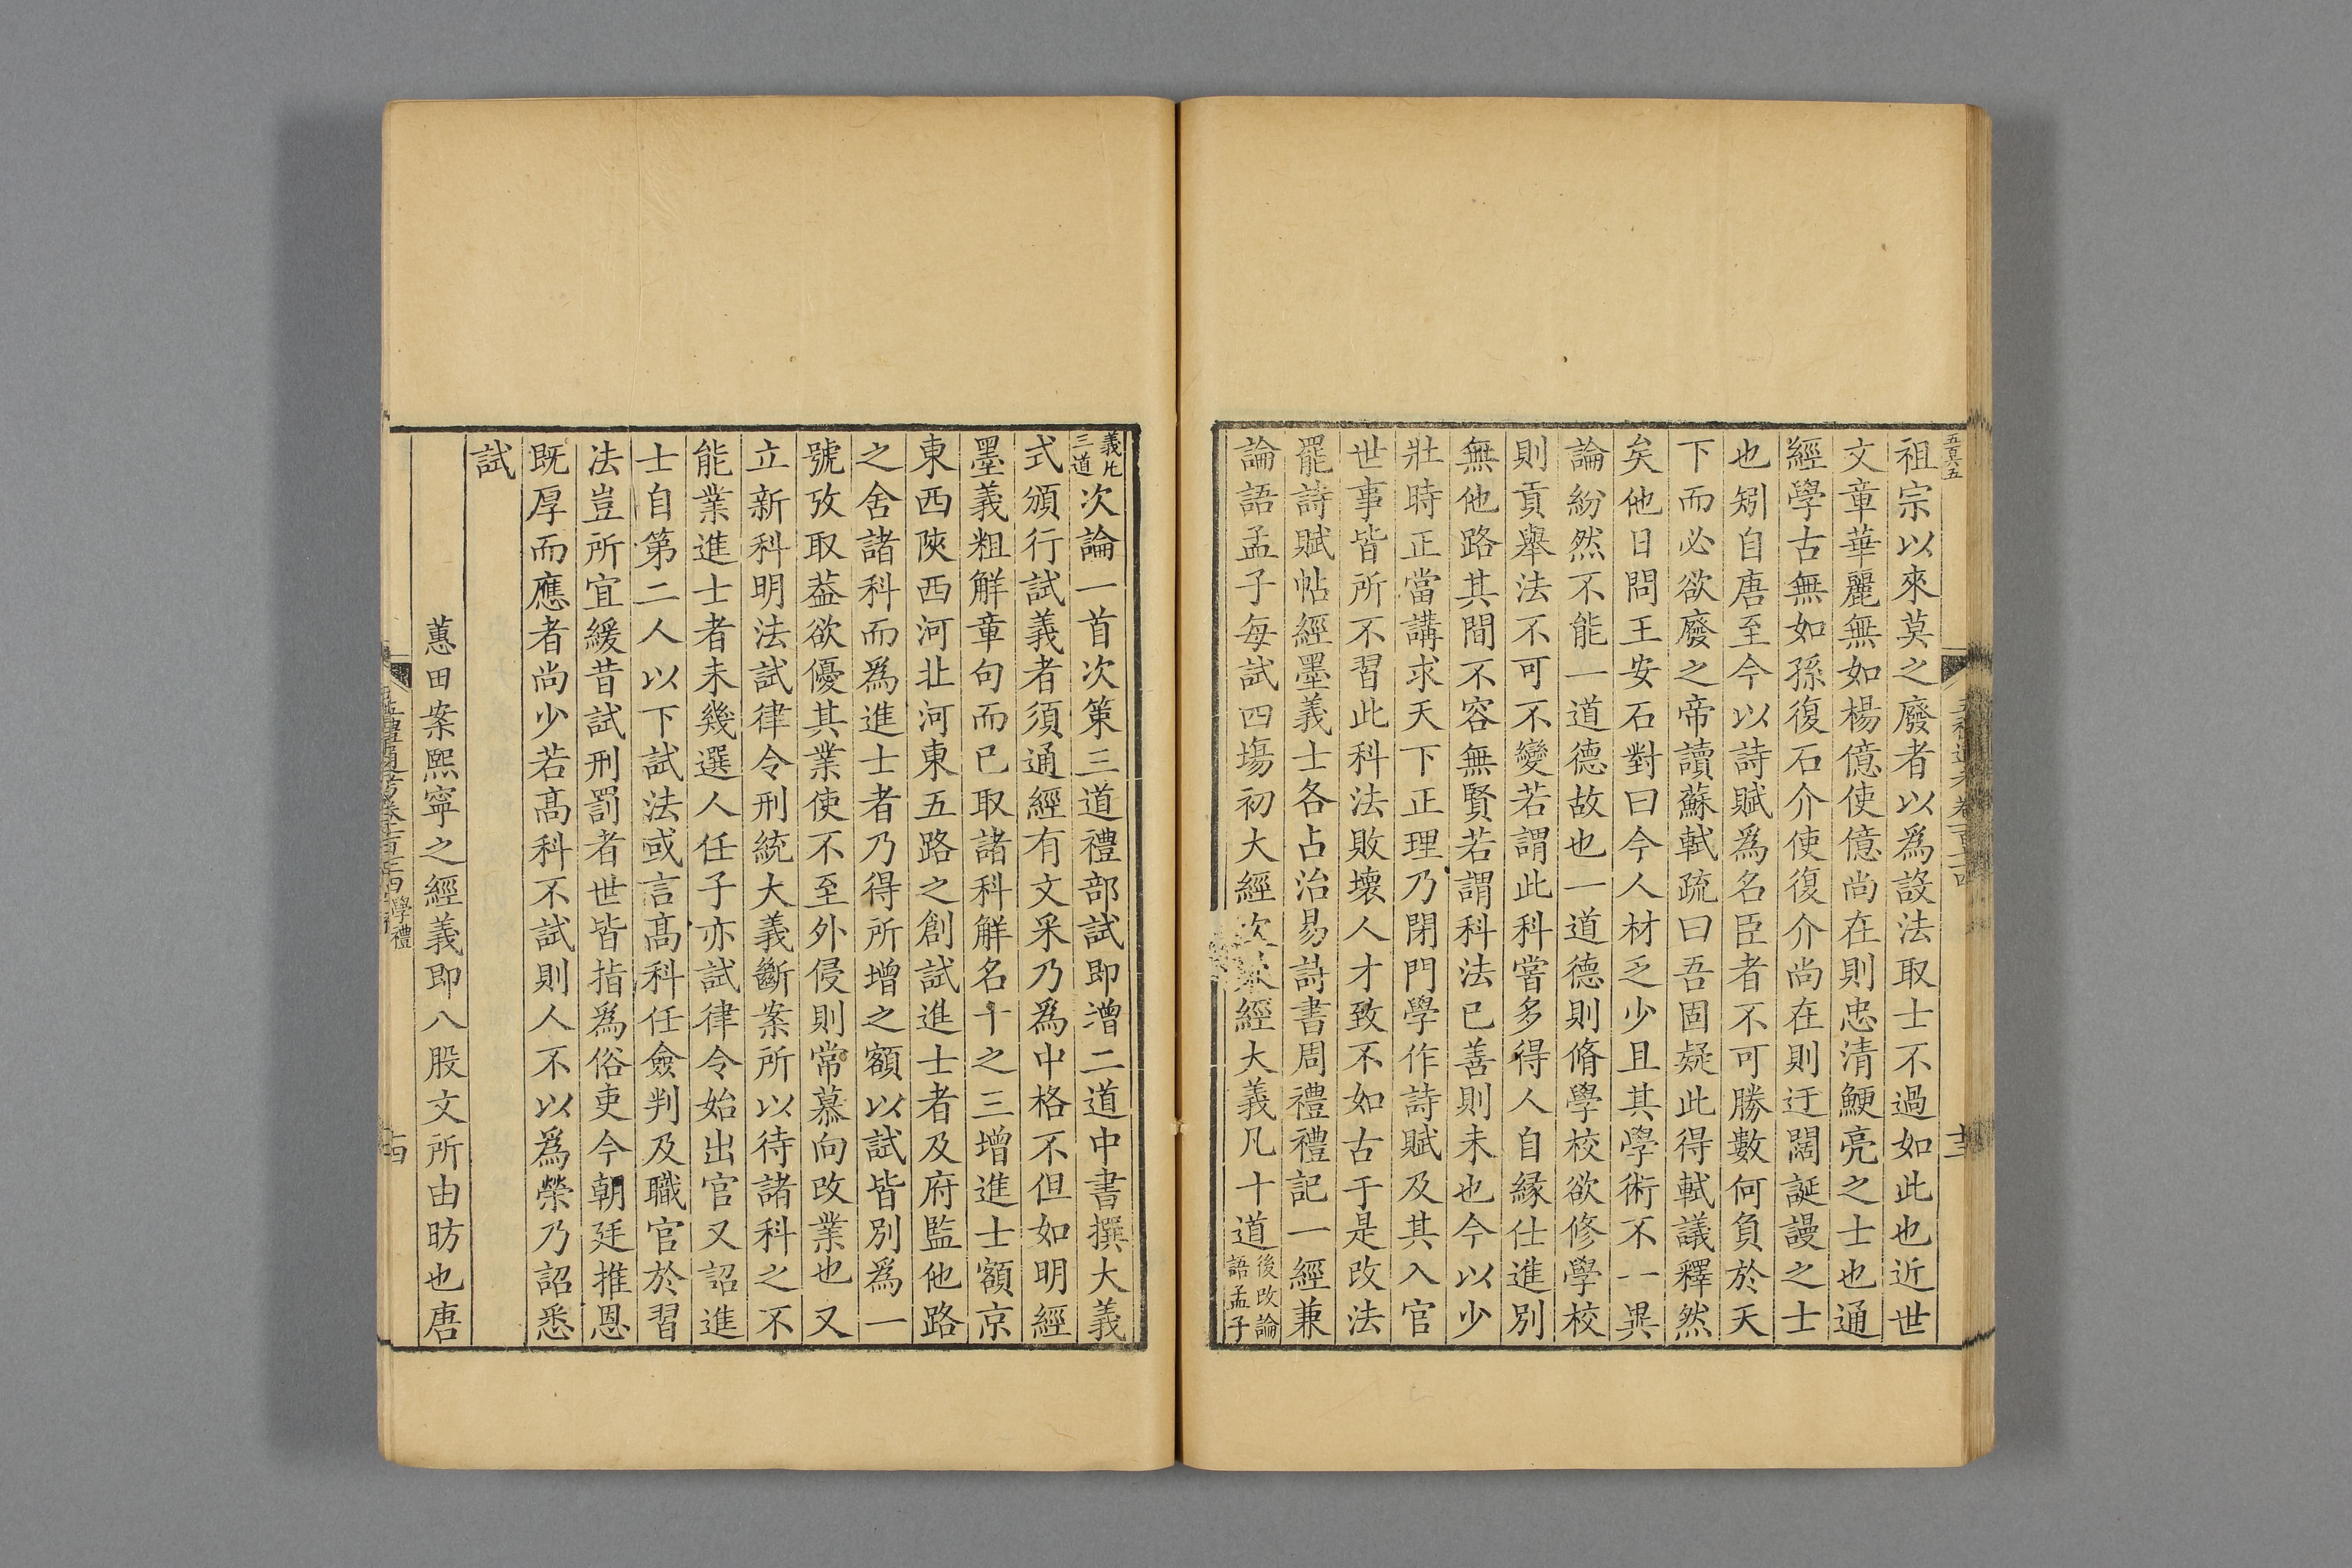 祖宗以來莫之廢者以爲設法取士不過如此也近世
文章華麗無如楊億使億尚在則忠清鯁亮之士也通
經學古無如孫復石介使復介尚在則迂闊誕謾之士
也矧自唐至今以詩賦爲名臣者不可勝數何負於天
下而必欲廢之帝讀蘇軾疏曰吾固疑此得軾議釋然
矣他日問王安石對曰今人材乏少且其學術不一異
論紛然不能一道德故也一道德則脩學校欲修學校
則貢舉法不可不變若謂此科嘗多得人自緣仕進別
無他路其間不容無賢若謂科法已善則未也今以少
壯時正當講求天下正理乃閉門學作詩賦及其入官
世事皆所不習此科法敗壞人才致不如古于是改法
罷詩賦帖經墨義士各占治易詩書周禮禮記一經兼
論語孟子每試四場初大經次兼經大義凡十道後改論語孟子
義凡三道次論一首次策三道禮部試即增二道中書撰大義
式頒行試義者須通經有文采乃爲中格不但如明經
墨義粗解章句而已取諸科解名十之三增進士額京
東西陝西河北河東五路之創試進士者及府監他路
之舍諸科而爲進士者乃得所增之額以試皆別爲一
號攷取葢欲優其業使不至外侵則常慕向改業也又
立新科明法試律令刑統大義斷案所以待諸科之不
能業進士者未幾選人任子亦試律令始出官又詔進
士自第二人以下試法或言高科任僉判及職官於習
法豈所宜緩昔試刑罰者世皆指爲俗吏今朝廷推恩
既厚而應者尚少若高科不試則人不以爲榮乃詔悉
試
蕙田案熙寧之經義即八股文所由昉也唐